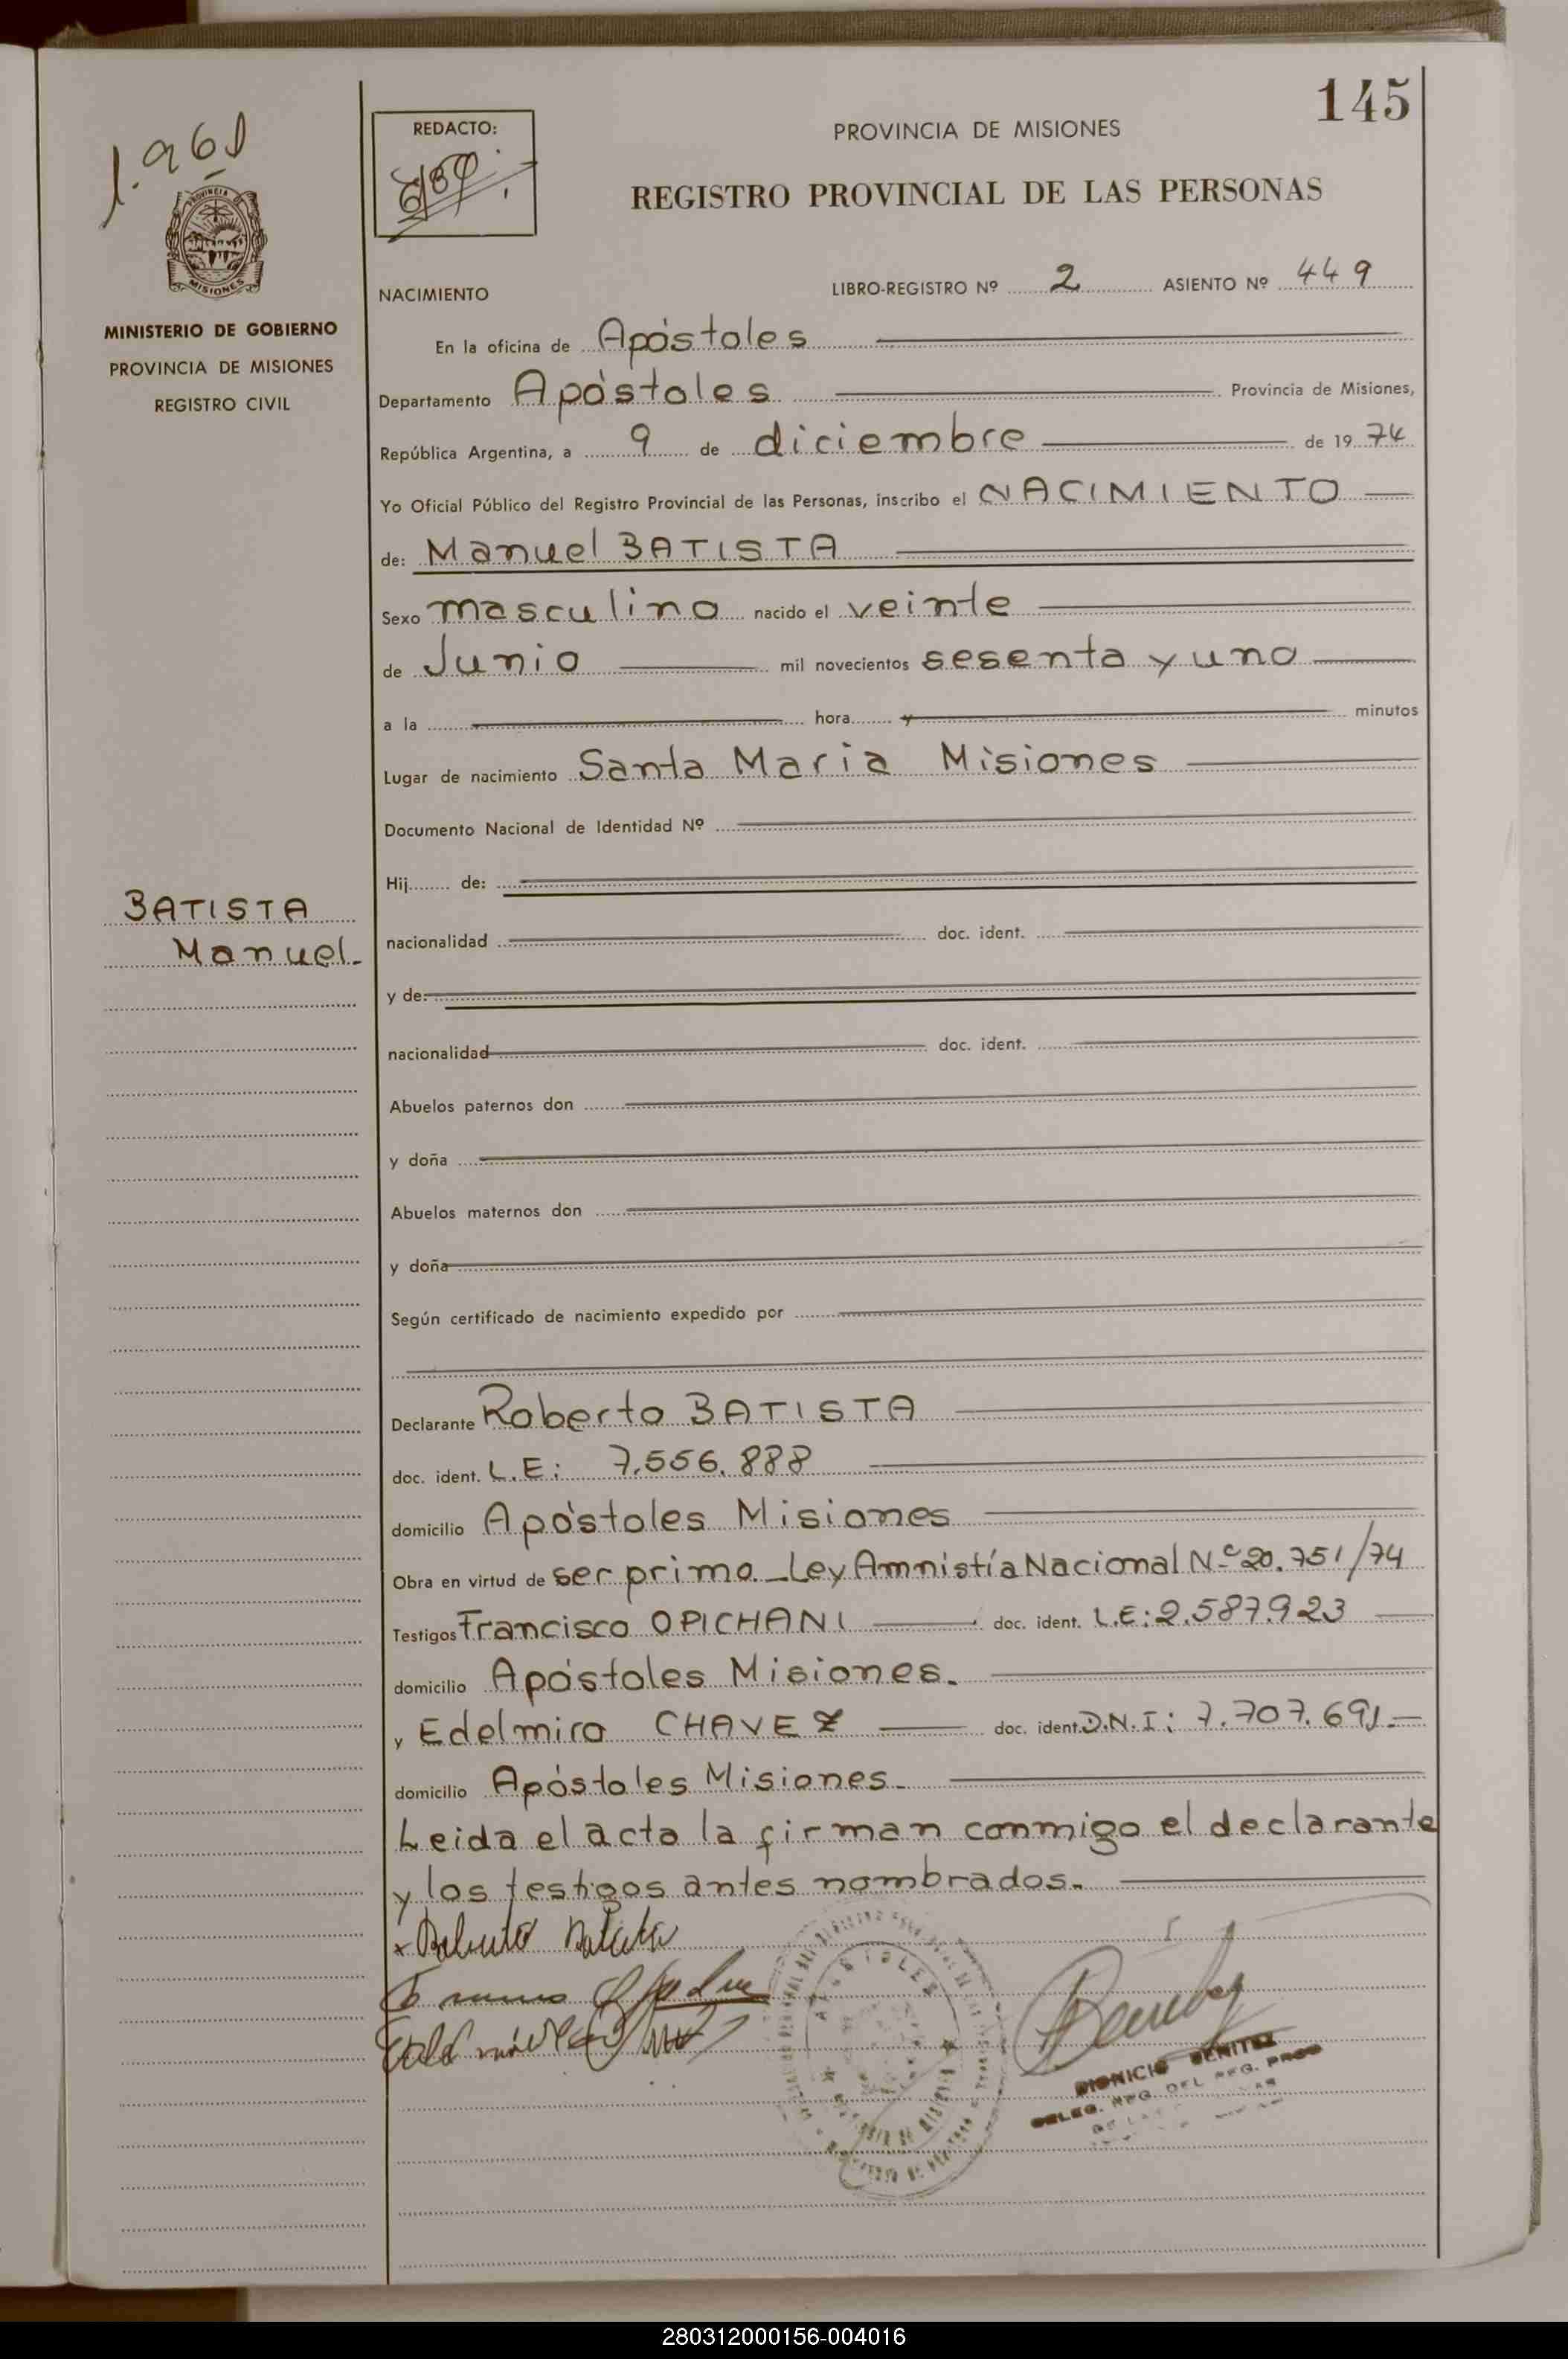 145
1.961
REDACTO:
PROVINCIA DE MISIONES
REGISTRO PROVINCIAL DE LAS PERSONAS
PROVINCIA
MISIONES
NACIMIENTO LIBRO-REGISTRO Nº 2 ASIENTO Nº 449
MINISTERIO DE GOBIERNO
PROVINCIA DE MISIONES
REGISTRO CIVIL
En la oficina de Apóstoles
Departamento Apóstoles Provincia de Misiones,
República Argentina, a 9 de diciembre de 1974
Yo Oficial Público del Registro Provincial de las Personas, inscribo el NACIMIENTO
de: Manuel BATISTA
Sexo masculino nacido el veinte
de Junio mil novecientos sesenta y uno
a la hora y minutos
Lugar de nacimiento Santa Maria Misiones
Documento Nacional de Identidad Nº
Hij de:
BATISTA
Manuel.
nacionalidad doc. ident.
y de:
nacionalidad doc. ident.
Abuelos paternos don
y doña
Abuelos maternos don
y doña
Según certificado de nacimiento expedido por
Declarante Roberto BATISTA
doc. ident. L.E: 7.556.888
domicilio Apóstoles Misiones
Obra en virtud de ser primo. Ley Amnistía Nacional N.º 20.751/74
Testigos Francisco OPICHANI doc. ident. L.E: 2.587.923
domicilio Apóstoles Misiones.
y Edelmiro CHAVEZ doc. ident. D.N.I: 7.707.691.
domicilio Apóstoles Misiones.
Leida el acta la firman conmigo el declarante
y los testigos antes nombrados.
Roberto Batista
APOSTOLES
DIONICIO BENITEZ
DELEG. REG. DEL REG. PROV
280312000156-004016